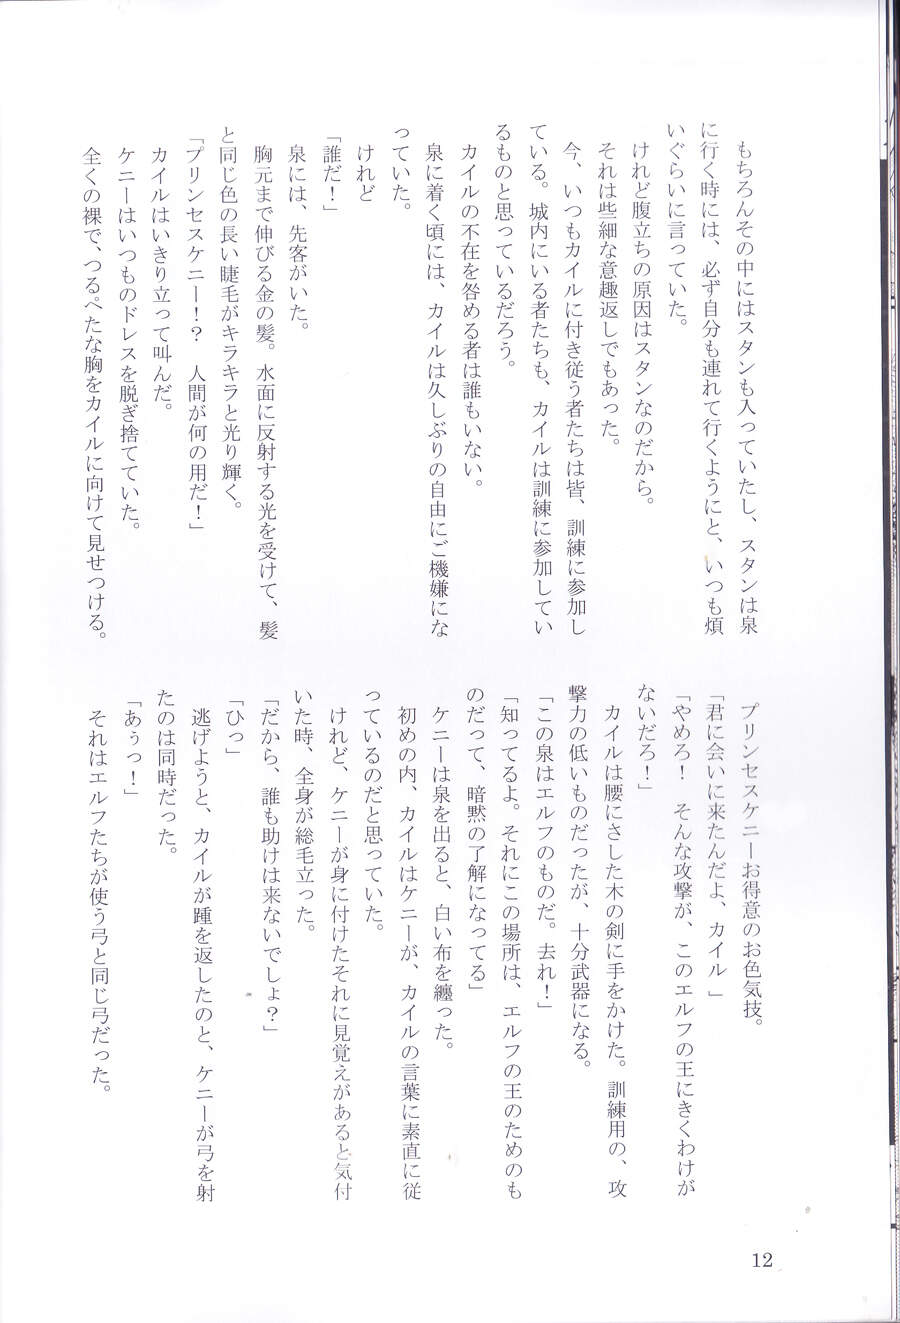 もちろんその中にはスタンも入っていたし、スタンは泉
に行く時には、必ず自分も連れて行くようにと、いつも煩
いぐらいに言っていた。
けれど腹立ちの原因はスタンなのだから。
それは些細な意趣返しでもあった。
今、いつもカイルに付き従う者たちは皆、訓練に参加し
ている。城内にいる者たちも、カイルは訓練に参加してい
るものと思っているだろう。
カイルの不在を咎める者は誰もいない。
泉に着く頃には、カイルは久しぶりの自由にご機嫌にな
っていた。
けれど
「誰だ！」
泉には、先客がいた。
胸元まで伸びる金の髪。水面に反射する光を受けて、髪
と同じ色の長い睫毛がキラキラと光り輝く。
「プリンセスケニー！？　人間が何の用だ！」
カイルはいきり立って叫んだ。
ケニーはいつものドレスを脱ぎ捨てていた。
「君に会いに来たんだよ、カイル」
「やめろ！　そんな攻撃が、このエルフの王にきくわけが
ないだろ！」
カイルは腰にさした木の剣に手をかけた。訓練用の、攻
撃力の低いものだったが、十分武器になる。
「この泉はエルフのものだ。去れ！」
「知ってるよ。それにこの場所は、エルフの王のためのも
のだって、暗黙の了解になってる」
ケニーは泉を出ると、白い布を纏った。
初めの内、カイルはケニーが、カイルの言葉に素直に従
っているのだと思っていた。
けれど、ケニーが身に付けたそれに見覚えがあると気付
いた時、全身が総毛立った。
「だから、誰も助けは来ないでしょ？」
「ひっ」
逃げようと、カイルが踵を返したのと、ケニーが弓を射
たのは同時だった。
「あぅっ！」
それはエルフたちが使う弓と同じ弓だった。
12